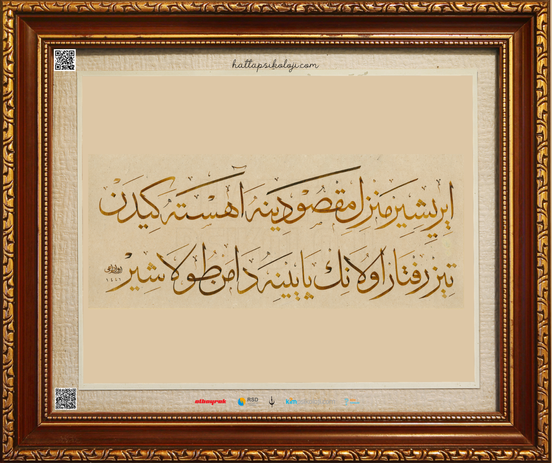 hattapsikoloji.com
ایریشیر منزل مقصودینه آهسته كیدن
تیز رفتار اولانك پایینه دامن طولاشیر
١٤٤١
RSD